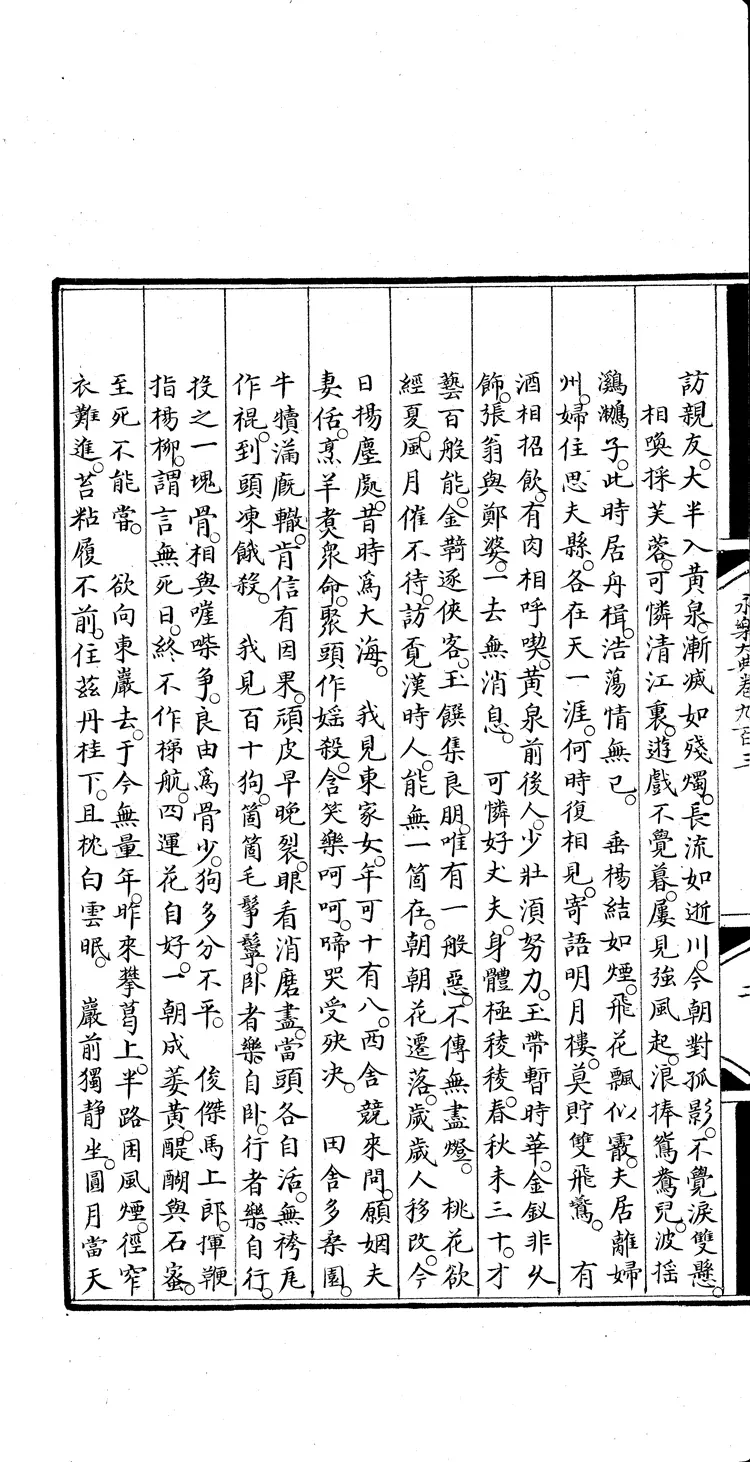 訪親友。大半入黃泉。漸減如殘燭。長流如逝川。今朝對孤影。不覺淚雙懸。
相喚採芙蓉。可憐清江裏。遊戲不覺暮。屢見強風起。浪捧鴛鴦兒。波搖
鸂鶒子。此時居舟楫。浩蕩情無已。 垂楊結如煙。飛花飄似霰。夫居離婦
州。婦住思夫縣。各在天一涯。何時復相見。寄語明月樓。莫貯雙飛鷰。 有
酒相招飲。有肉相呼喫。黃泉前後人。少壯須努力。玉帶暫時華。金釵非久
飾。張翁與鄭婆。一去無消息。 可憐好丈夫。身體極稜稜。春秋未三十。才
藝百般能。金羇逐俠客。玉饌集良朋。唯有一般惡。不傳無盡燈。 桃花欲
經夏。風月催不待。訪覓漢時人。能無一箇在。朝朝花遷落。歲歲人移改。今
日楊塵處。昔時爲大海。 我見東家女。年可十有八。西舍競來問。願姻夫
妻佸。烹羊煑衆命。聚頭作婬殺。含笑樂呵呵。啼哭受殃决。 田舍多桑園。
牛犢滿廐轍。肯信有因果。頑皮早晚裂。眼看消磨盡。當頭各自活。無袴瓦
作裩。到頭凍餓殺。 我見百十狗。箇箇毛鬇鬡。卧者樂自卧。行者樂自行。
投之一塊骨。相與啀喍爭。良由爲骨少。狗多分不平。 俊傑馬上郎。揮鞭
指楊柳。謂言無死日。終不作梯航。四運花自好。一朝成萎黃。醍醐與石蜜。
至死不能嘗。 欲向東巖去。于今無量年。昨來攀葛上。半路困風煙。徑窄
衣難進。苔粘履不前。住茲丹桂下。且枕白雲眠。 巖前獨靜坐。圓月當天
永樂大典卷九百三
二